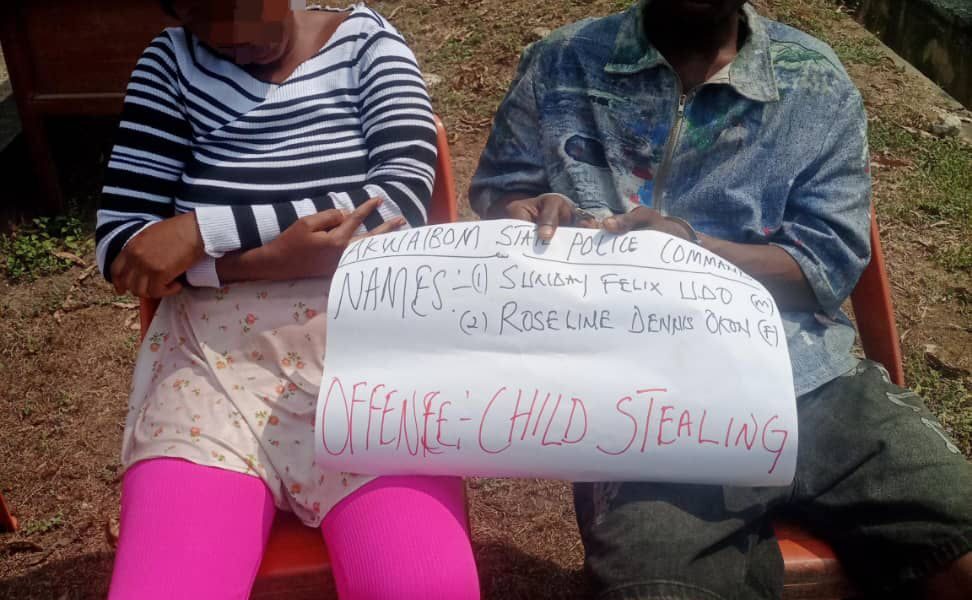 AKWAIBOM STATE POLICE COMMAND
NAMES:- (1) SUNDAY FELIX UDO (M)
(2) ROSELINE DENNIS OKON (F)
OFFENCE:- CHILD STEALING